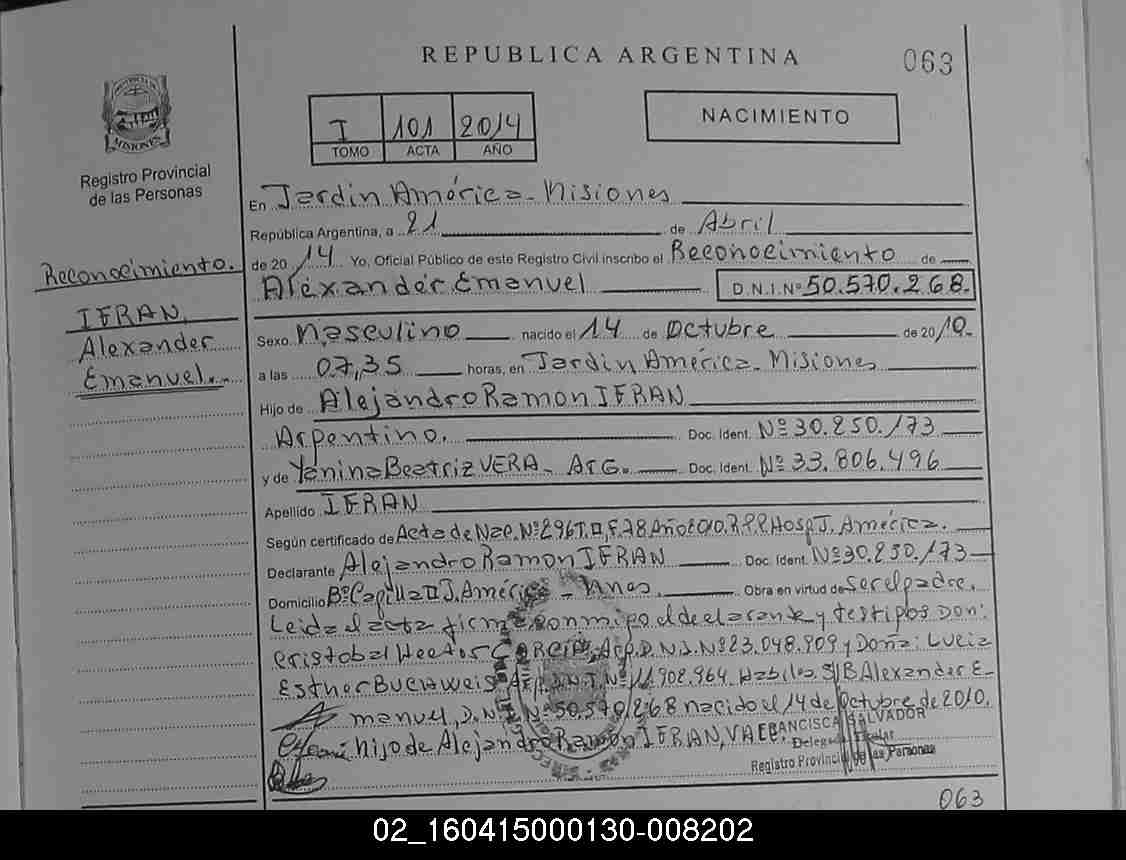 REPUBLICA ARGENTINA
063
PROVINCIA DE
MISIONES
Registro Provincial
de las Personas
I 101 2014
TOMO ACTA AÑO
NACIMIENTO
En Jardin América - Misiones
República Argentina, a 21 de Abril
de 20 14 Yo, Oficial Público de este Registro Civil inscribo el Reconocimiento de
Alexander Emanuel D.N.I. Nº 50.570.268.
Reconocimiento.
IFRAN,
Alexander
Emanuel.
Sexo Masculino nacido el 14 de Octubre de 2010.
a las 07,35 horas, en Jardin América - Misiones
Hijo de Alejandro Ramon IFRAN
Argentino. Doc. Ident. Nº 30.850.173
y de Yanina Beatriz VERA - ArG. Doc. Ident. Nº 33.806.496
Apellido IFRAN
Según certificado de Acta de Nac. Nº 296 T. II, F. 78 Año 2010. R.P.P. Hosp J. América.
Declarante Alejandro Ramon IFRAN Doc. Ident. Nº 30.850.173
Domicilio Bº Capilla II J. América - Mnes. Obra en virtud de Ser el padre.
Leida el acta firma conmigo el declarante y testigos Don:
Cristobal Hector GARCIA, Arg. D.N.I. Nº 23.048.909 y Doña: Lucia
Esther BUCHWEIS Arg. D.N.I. Nº 11.908.964 Habiles S/B Alexander E-
manuel, D.N.I. Nº 50.570.268 nacido el 14 de Octubre de 2010.
hijo de Alejandro Ramon IFRAN, VALE.
FRANCISCA SALVADOR
Delegada Titular
Registro Provincial de las Personas
063
02_160415000130-008202